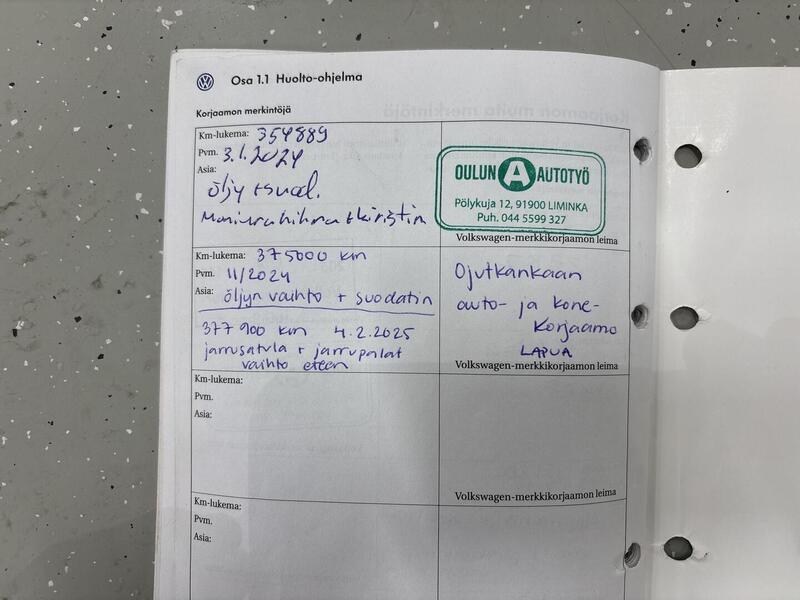 Osa 1.1 Huolto-ohjelma
Korjaamon merkintöjä
Km-lukema: 354889
Pvm. 3.1.2024
Asia:
öljy + suod.
Moniurahihna + kiristin
OULUN A AUTOTYÖ
Pölykuja 12, 91900 LIMINKA
Puh. 044 5599 327
Volkswagen-merkkikorjaamon leima
Km-lukema: 375000 km
Pvm. 11/2024
Asia: öljyn vaihto + suodatin
377 900 km 4.2.2025
jarrusatula + jarrupalat
vaihto eteen
Ojutkankaan
auto- ja kone-
korjaamo
LAPUA
Volkswagen-merkkikorjaamon leima
Km-lukema:
Pvm.
Asia:
Volkswagen-merkkikorjaamon leima
Km-lukema:
Pvm.
Asia: